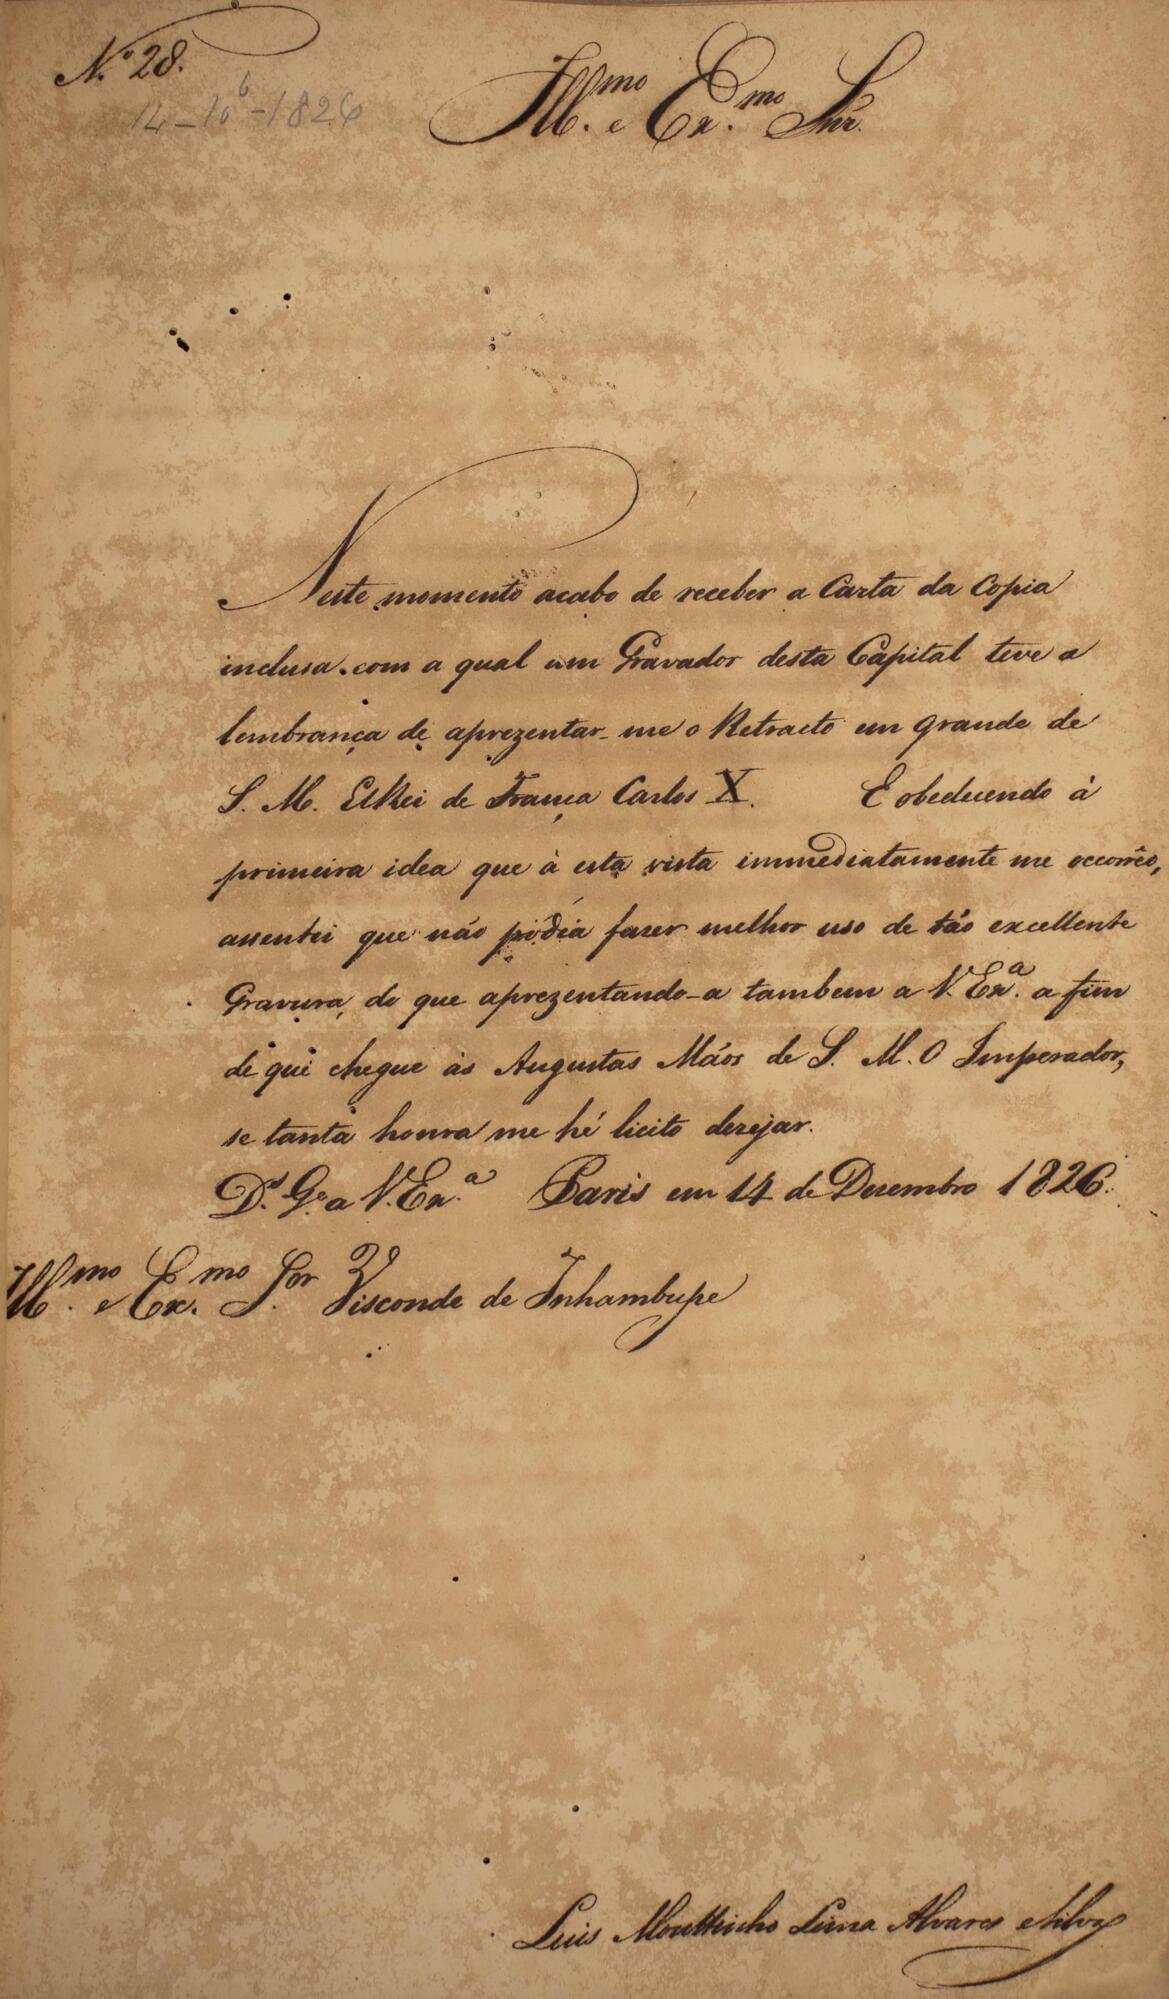 N.º 28.
14-10b-1826
Ill.mo e Ex.mo Snr.
Neste momento acabo de receber a Carta da Copia
inclusa com a qual um Gravador desta Capital teve a
lembrança de aprezentar-me o Retracto em grande de
S. M. ElRei de França Carlos X. E obedecendo à
primeira idea que à esta vista immediatamente me occorrêo,
assentei que não podia fazer melhor uso de tão excellente
Gravura, do que aprezentando-a tambem a V. Ex.a a fim
de que chegue às Augustas Mãos de S. M. O Imperador,
se tanta honra me hé licito dezejar.
D.s G.e a V. Ex.a Paris em 14 de Dezembro 1826.
Ill.mo e Ex.mo S.or Visconde de Inhambupe
Luis Mouttinho Lima Alvares e Silva